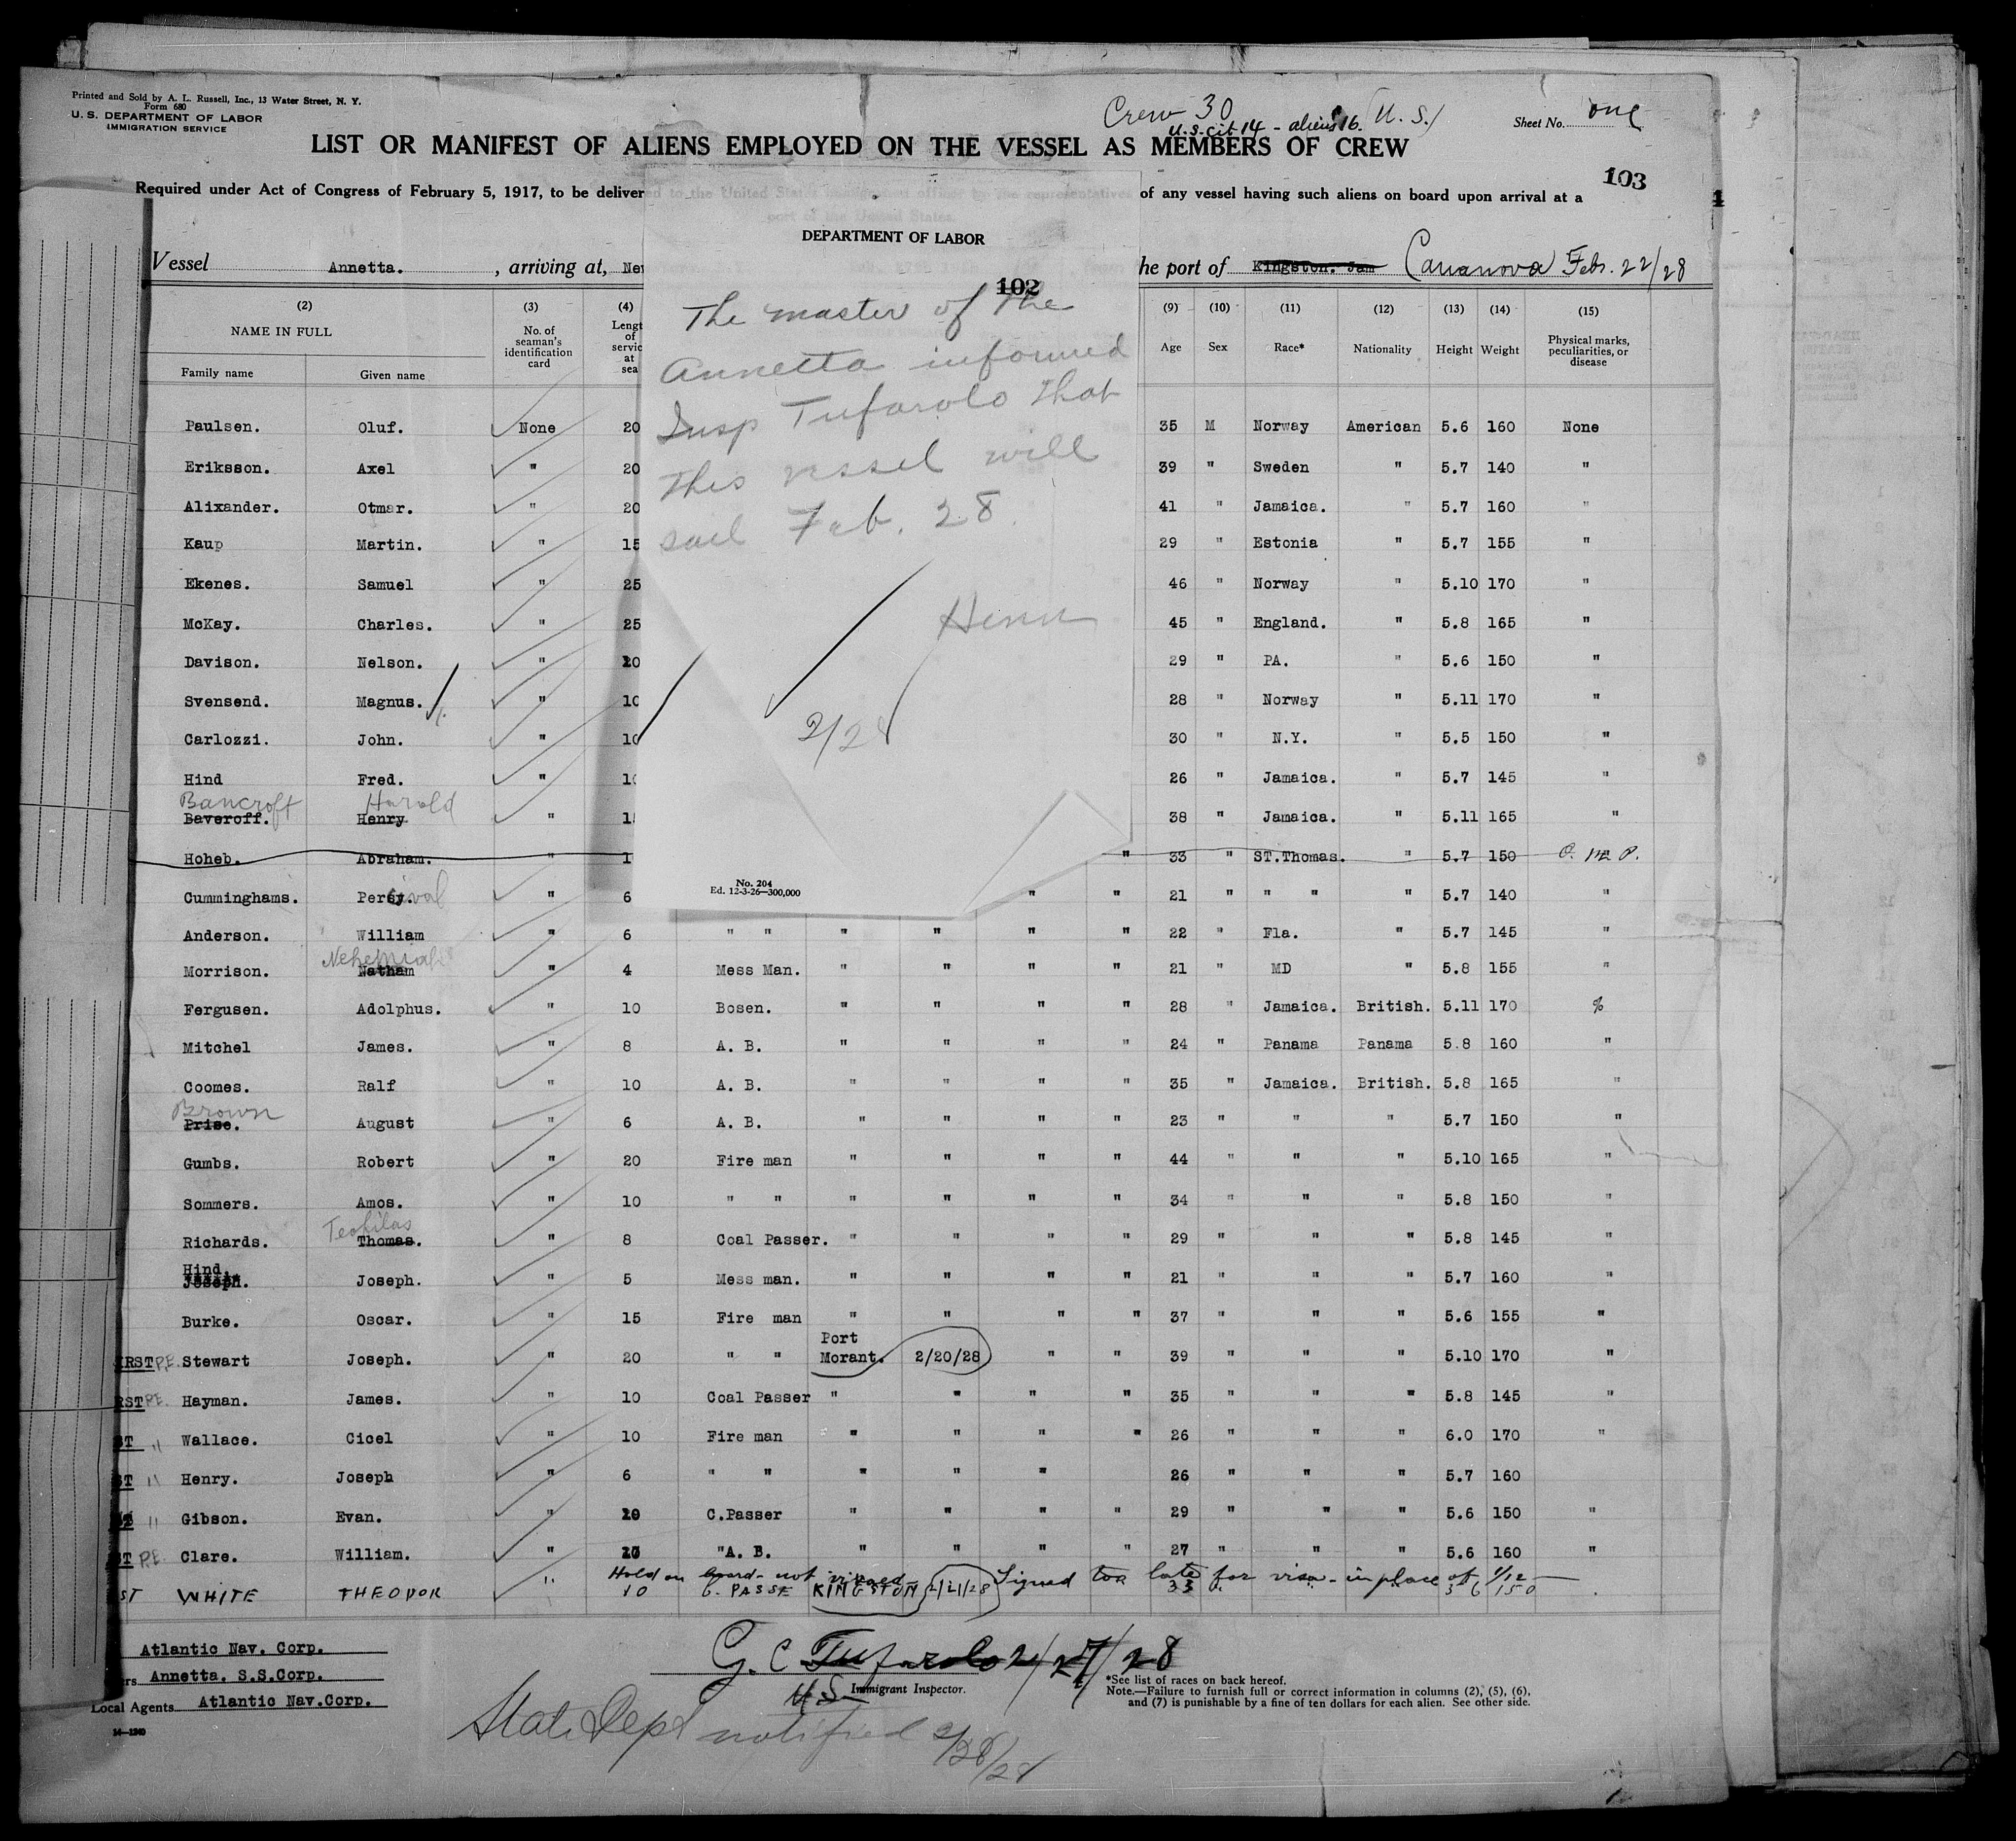 Printed and Sold by A. L. Russell, Inc., 13 Water Street, N. Y.
Form 680
U. S. DEPARTMENT OF LABOR
IMMIGRATION SERVICE
Crew 30 (U. S.)
U.S. cit 14 - aliens 16.
Sheet No. one
LIST OR MANIFEST OF ALIENS EMPLOYED ON THE VESSEL AS MEMBERS OF CREW
103
Required under Act of Congress of February 5, 1917, to be delivered to the United States of any vessel having such aliens on board upon arrival at a
port of the United States.
DEPARTMENT OF LABOR
102
The master of the
Annetta informed
Insp Tufarolo that
this vessel will
sail Feb. 28.
2/28
No. 204
Ed. 12-3-26—300,000
Vessel Annetta. , arriving at, New he port of Kingston. Jam Feb. 22/28
(2) (3) (4) (9) (10) (11) (12) (13) (14) (15)
NAME IN FULL No. of seaman's identification card Lengt of servic at sea Age Sex Race* Nationality Height Weight Physical marks, peculiarities, or disease
Family name Given name
Paulsen. Oluf. None 20 35 M Norway American 5.6 160 None
Eriksson. Axel " 20 39 " Sweden " 5.7 140 "
Alixander. Otmar. " 20 41 " Jamaica. " 5.7 160 "
Kaup Martin. " 15 29 " Estonia " 5.7 155 "
Ekenes. Samuel " 25 46 " Norway " 5.10 170 "
McKay. Charles. " 25 45 " England. " 5.8 165 "
Davison. Nelson. " 20 29 " PA. " 5.6 150 "
Svensend. Magnus. " 10 28 " Norway " 5.11 170 "
Carlozzi. John. " 10 30 " N.Y. " 5.5 150 "
Hind Fred. " 10 26 " Jamaica. " 5.7 145 "
Bancroft Harold
Baveroff. Henry " 1 38 " Jamaica. " 5.11 165 "
Hoheb. Abraham. " 1 " 33 " ST.Thomas. " 5.7 150
Cumminghams. Percy. ival " 6 " " 21 " " " " 5.7 140 "
Anderson. William " 6 " " " " " " 22 " Fla. " 5.7 145 "
Nehemiah
Morrison. Nathan " 4 Mess Man. " " " " 21 " MD " 5.8 155 "
Fergusen. Adolphus. " 10 Bosen. " " " " 28 " Jamaica. British. 5.11 170 %
Mitchel James. " 8 A. B. " " " " 24 " Panama Panama 5.8 160 "
Coomes. Ralf " 10 A. B. " " " " 35 " Jamaica. British. 5.8 165 "
Brown
Prise. August " 6 A. B. " " " " 23 " " " 5.7 150 "
Gumbs. Robert " 20 Fire man " " " " 44 " " " 5.10 165 "
Sommers. Amos. " 10 " " " " " " 34 " " " 5.8 150 "
Teofilas
Richards. Thomas. " 8 Coal Passer. " " " " 29 " " " 5.8 145 "
Hind.
Joseph. Joseph. " 5 Mess man. " " " " 21 " " " 5.7 160 "
Burke. Oscar. " 15 Fire man " " " " 37 " " " 5.6 155 "
IRST P.E. Stewart Joseph. " 20 " " Port Morant. 2/20/28 " " 39 " " " 5.10 170 "
RST P.E. Hayman. James. " 10 Coal Passer " " " " 35 " " " 5.8 145 "
ST " Wallace. Cicel " 10 Fire man " " " " 26 " " " 6.0 170 "
ST " Henry. Joseph " 6 " " " " " 26 " " " 5.7 160
" Gibson. Evan. " C.Passer " " " " 29 " " " 5.6 150 "
ST P.E. Clare. William. " "A. B. " " " " 27 " " " 5.6 160 "
Hold on board - not visaed - Signed too late for visa - in place of
ST WHITE THEODOR " 10 C. PASSE KINGSTON 2/21/28 33 150
Atlantic Nav. Corp.
rs Annetta. S.S.Corp.
Local Agents Atlantic Nav.Corp.
14—1240
G. C Tufarolo 2/27/28
U.S. Immigrant Inspector.
*See list of races on back hereof.
Note.—Failure to furnish full or correct information in columns (2), (5), (6),
and (7) is punishable by a fine of ten dollars for each alien. See other side.
State Dept notified 2/28/28